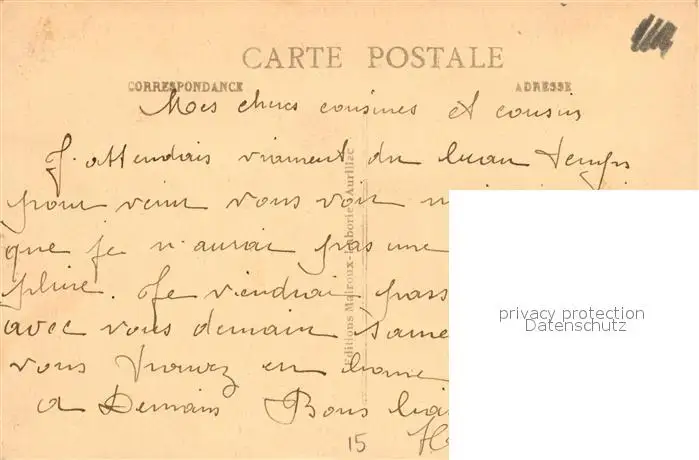 CARTE POSTALE
CORRESPONDANCE ADRESSE
Mes chers cousines et cousins
J'attendais vraiment du beau temps
pour venir vous voir
que je n'aurai pas une
pluie. Je viendrai pass
avec vous demain same
vous trouvez en bonne
a Demain Bons bai
Editions Malroux-Laborie, Aurillac
15
privacy protection
Datenschutz